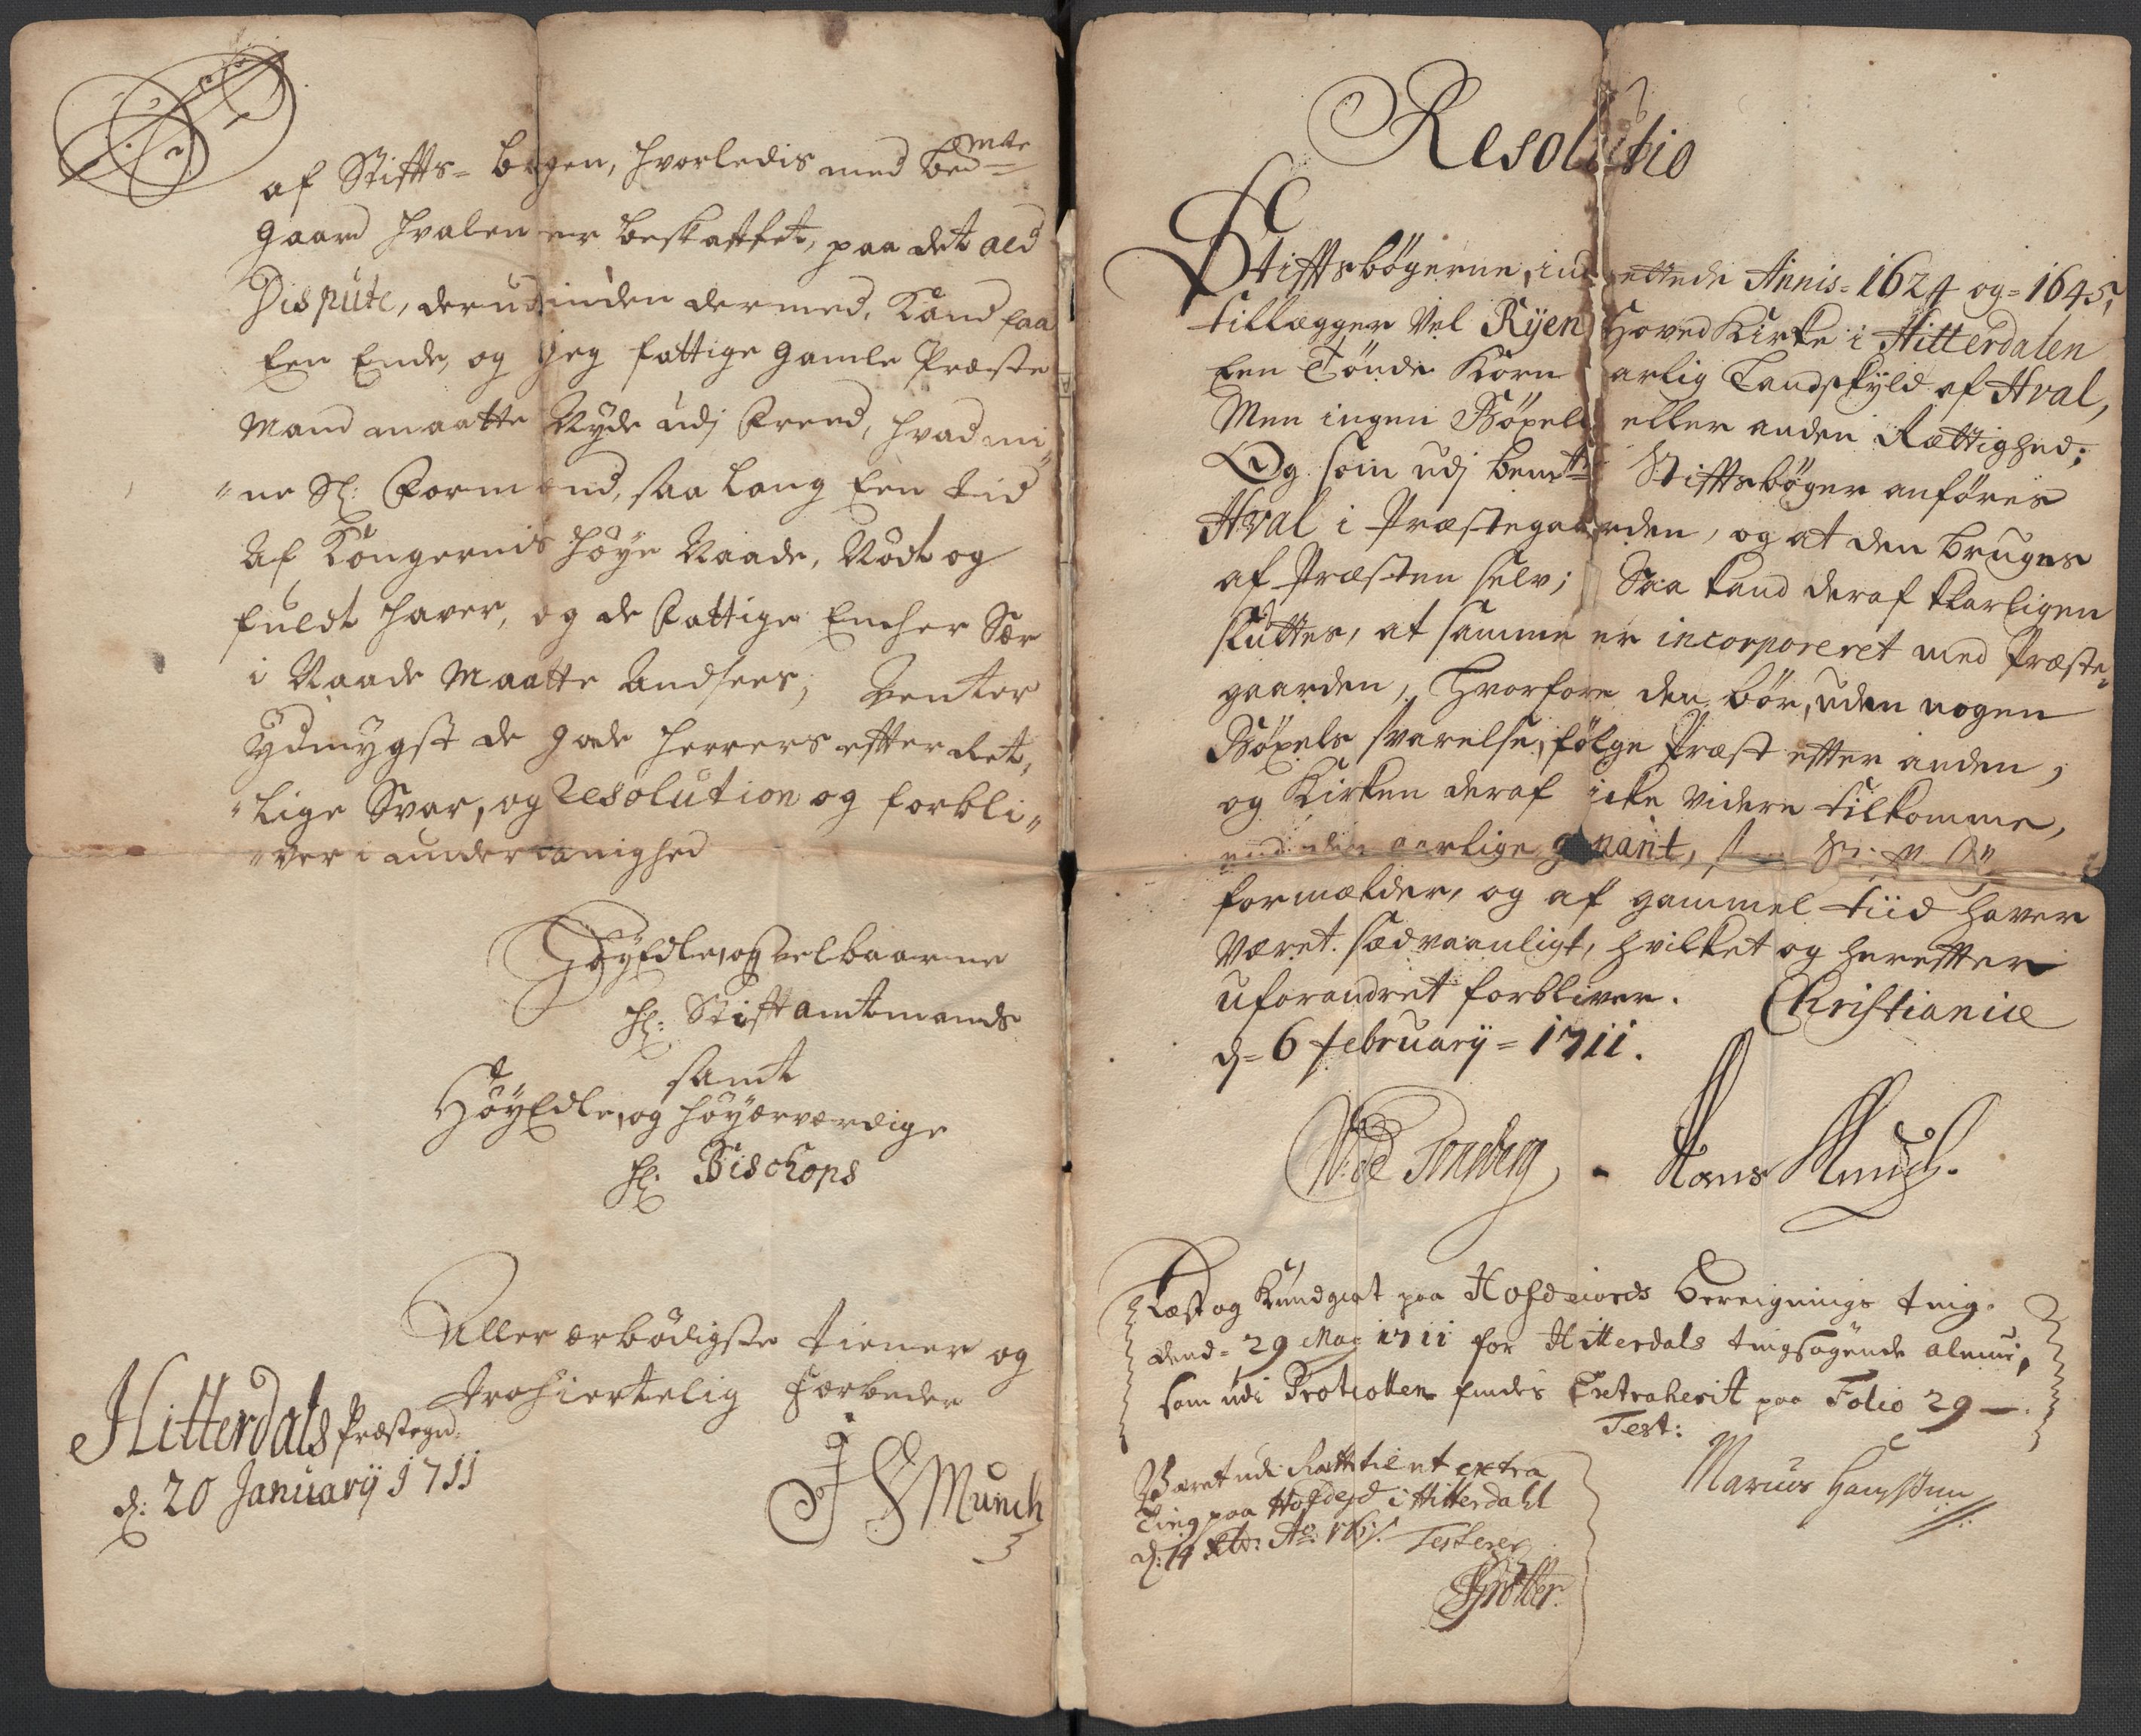 af Stiffts- bogen, hvorledis med bemte
gaard Hvalen er beskaffet, paa det ald
Dispute, derudinden dermed, Kand faa
Een Ende, og jeg fattige gamle Præste
Mand maatte Nyde udj Freed, hvad mi„
„ne Sl: Formænd, saa lang Een tid
Af Kongernis Høye Naade, Nødt og
fuldt haver, og de Fattige Encher Sær
i Naade Maatte Andsees; Venter
Ydmygst de gode Herrers efterret„
„lige Svar, og Resolution og forbli„
„ver i underdanighed
HøyEdle, og velbaarne
Hr: Stifft amtmands
samt
HøyEdle, og høyærværdige
Hr: Bischops
Aller ærbødigste tiener og
troehiertelig Forbeder
Hitterdals Præstegrd:
d: 20 January 1711
Munch
Resolutio
Stifftsbøgerne, indrettede Annis= 1624 og= 1645,
tillægger Vel Ryen Hoved Kirke i Hitterdalen
Een Tønde Korn aarlig Landskyld af Hval,
Men ingen Bøxel eller anden Rættighed;
Og som udj bemte Stifftsbøger anføres
Hval i Præstegaarden, og at den bruges
af Præsten selv; Saa kand deraf klarligen
sluttes, at samme er incorporeret med Præste„
gaarden, Hvorfore den bør, uden nogen
Bøxels svarelse, følge Præst efter anden,
og Kirken deraf icke videre tilkomme,
end den aarlige genant,
formelder, og af gammel tiid haver
været sædvaanligt, hvilket og herefter
uforandret forbliver. Christianiæ
d= 6 February= 1711.
W: de Tonsberg - Hans Munch.
Læst og Kundgiort paa Hofdeiords bereignings ting
dend= 29 May 1711 for Hitterdals tingsøgende almue,
som udi Protocollen findes Extraherit paa Folio 29 —.
Test:
Marcus Hanssen
Været udi Rætte til et extra
Ting paa Hofdejord i Hitterdahl
Testerer